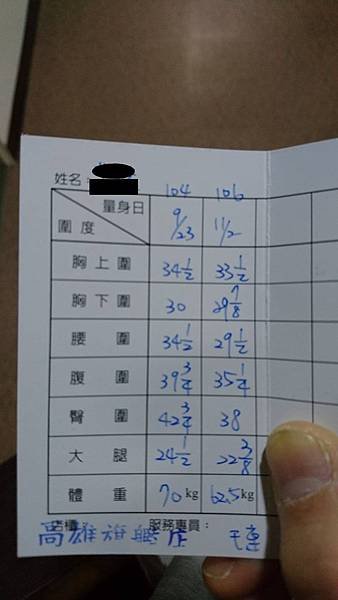 姓名：
104 106
量身日
圍度 9/23 11/2
胸上圍 34 1/2 33 1/2
胸下圍 30 29 7/8
腰圍 34 1/2 29 1/2
腹圍 39 3/4 35 1/4
臀圍 42 3/4 38
大腿 24 1/2 22 3/8
體重 70 kg 62.5 kg
店櫃： 服務專員：
高雄旗艦店